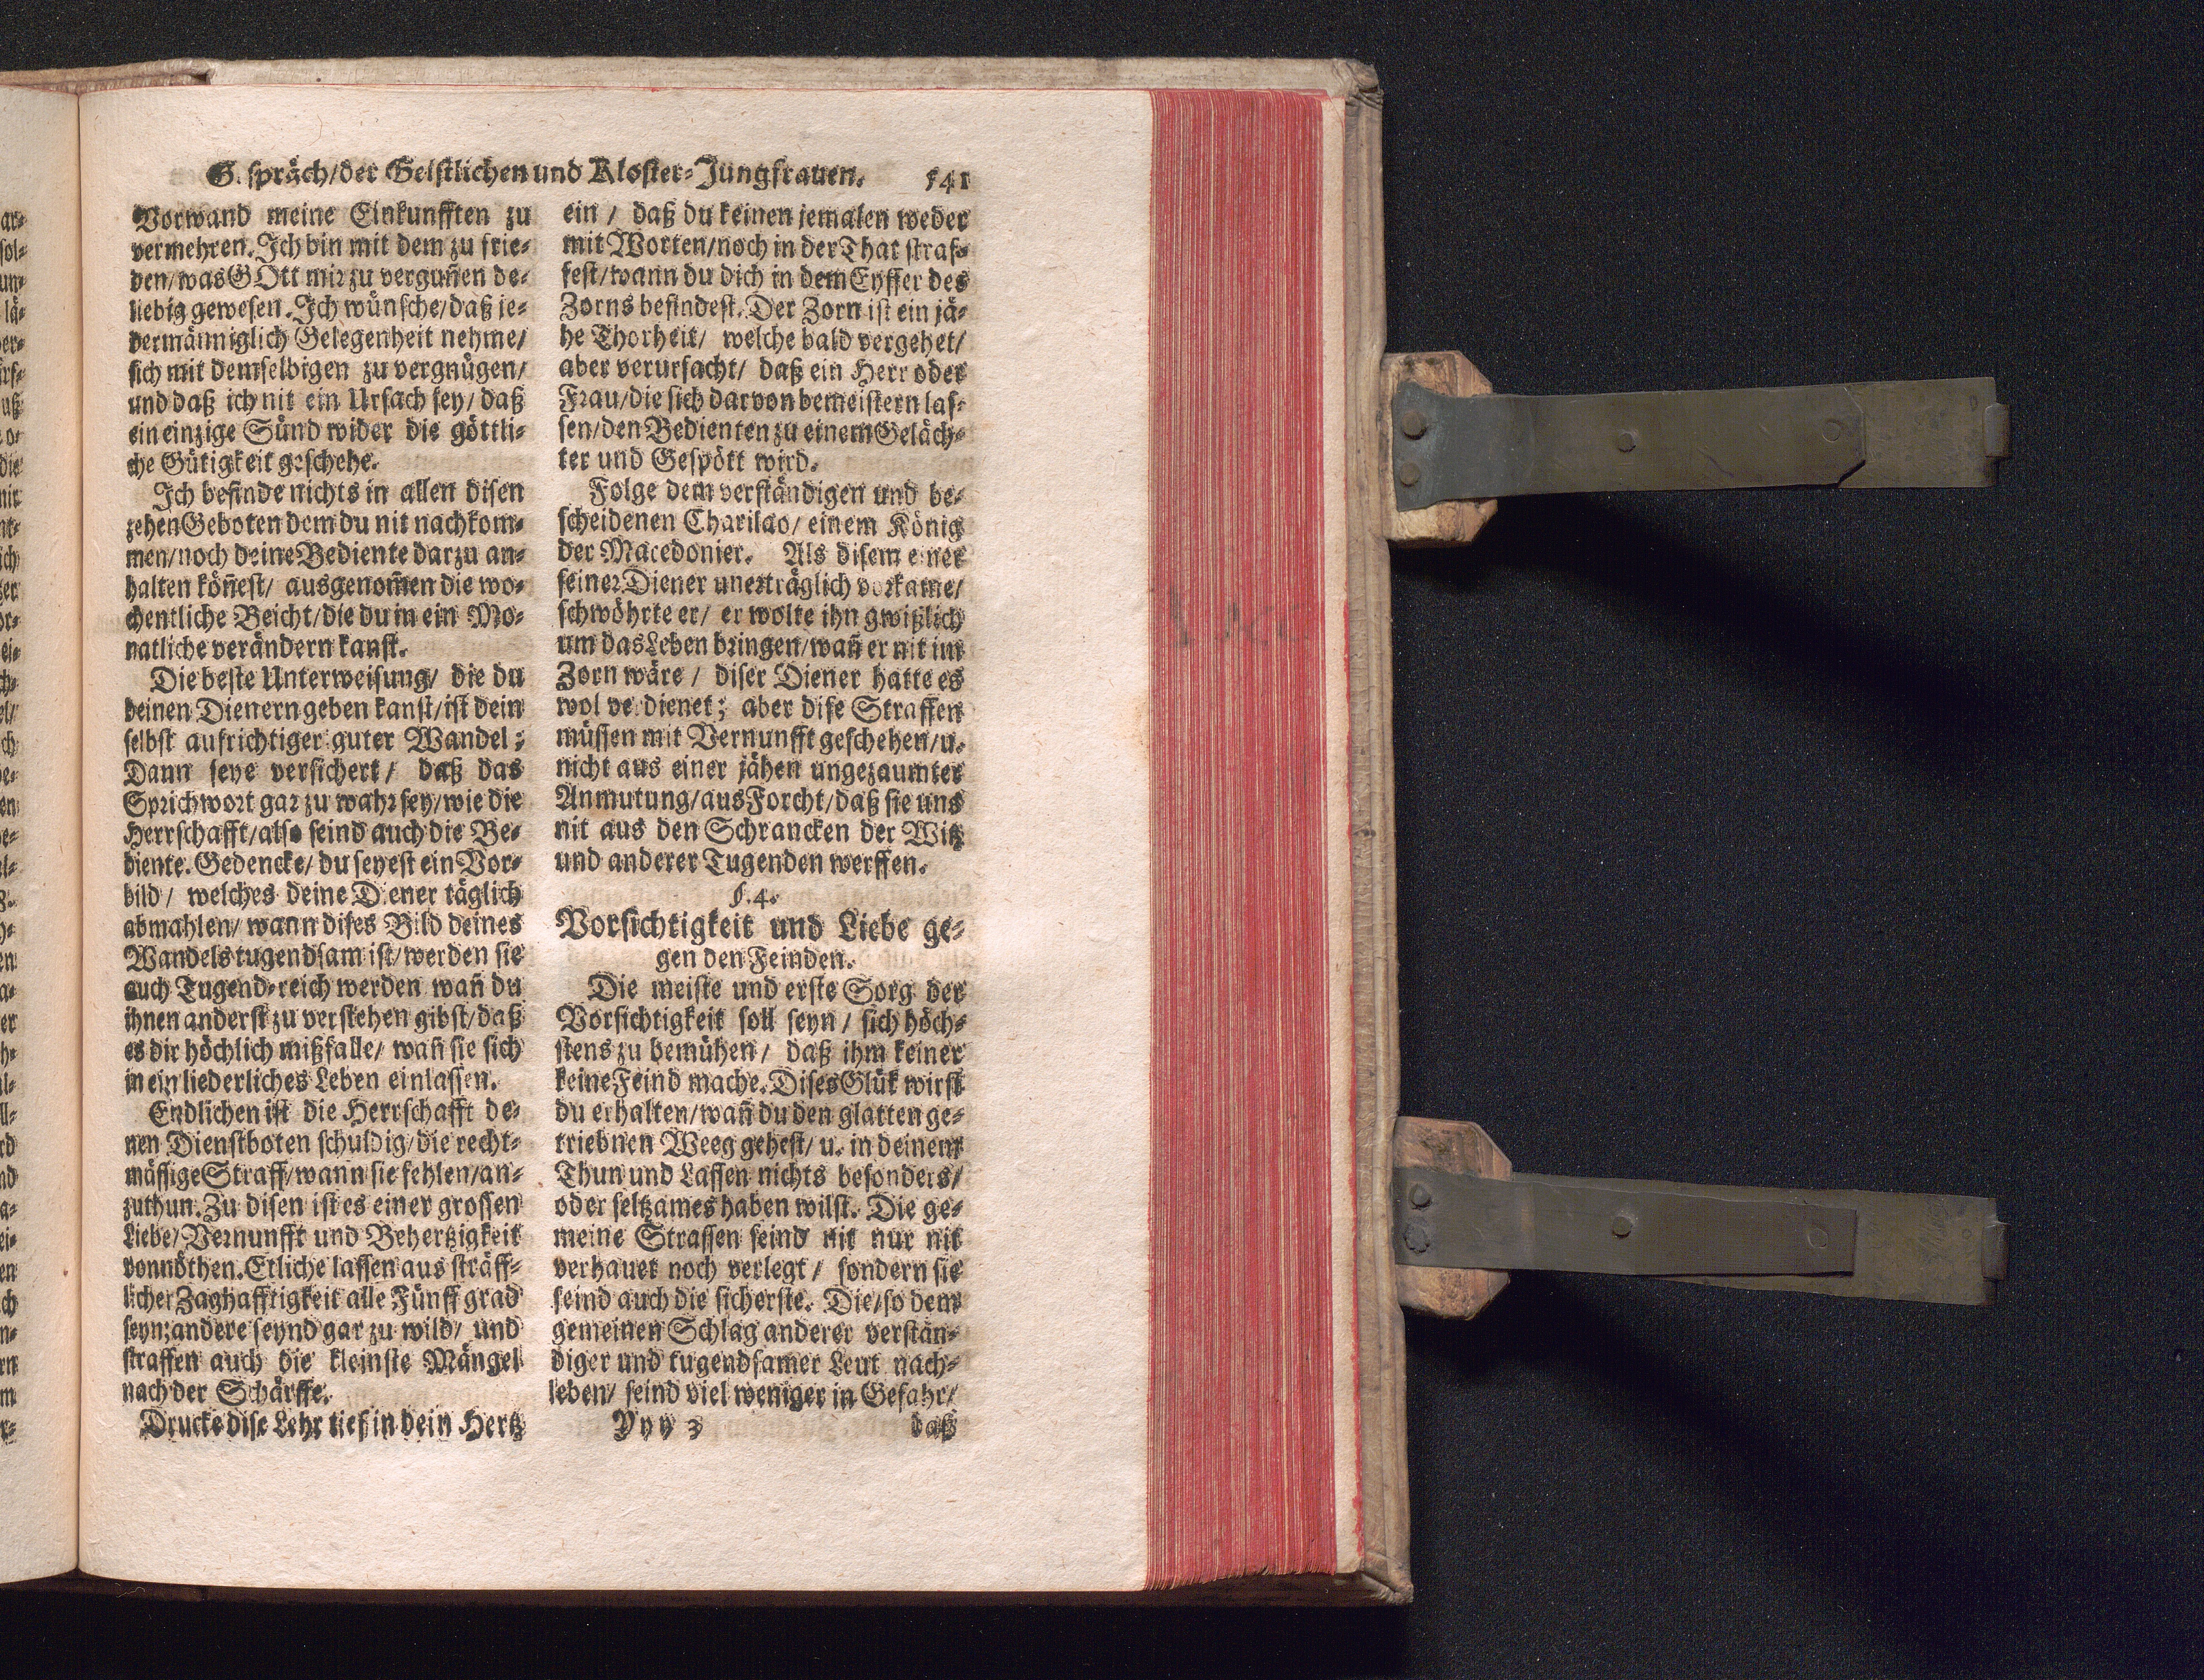 G. spräch/der Geistlichen und Kloster-Jungfrauen. 541
Vorwand meine Einkunfften zu
vermehren. Ich bin mit dem zu frie-
den/was GOtt mir zu vergun̄en be-
liebig gewesen. Ich wünsche/daß je-
dermänniglich Gelegenheit nehme/
sich mit demselbigen zu vergnügen/
und daß ich nit ein Ursach sey/daß
ein einzige Sünd wider die göttli-
che Gütigkeit geschehe.
Ich befinde nichts in allen disen
zehen Geboten dem du nit nachkom-
men/noch deine Bediente darzu an-
halten kön̄est/ ausgenom̄en die wo-
chentliche Beicht/die du in ein Mo-
natliche verändern kanst.
Die beste Unterweisung/ die du
deinen Dienern geben kanst/ist dein
selbst aufrichtiger guter Wandel;
Dann seye versichert/ daß das
Sprichwort gar zu wahr sey/wie die
Herrschafft/also seind auch die Be-
diente. Gedencke/ du seyest ein Vor-
bild/ welches deine Diener täglich
abmahlen/ wann dises Bild deines
Wandels tugendsam ist/werden sie
auch Tugend-reich werden wan̄ du
ihnen anderst zu verstehen gibst/daß
es dir höchlich mißfalle/ wan̄ sie sich
in ein liederliches Leben einlassen.
Endlichen ist die Herrschafft de-
nen Dienstboten schuldig/die recht-
mässige Straff/wann sie fehlen/an-
zuthun. Zu disen ist es einer grossen
Liebe/Vernunfft und Behertzigkeit
vonnöthen. Etliche lassen aus sträff-
licher Zaghafftigkeit alle Fünff grad
seyn; andere seynd gar zu wild/ und
straffen auch die kleinste Mängel
nach der Schärffe.
Drucke dise Lehr tief in dein Hertz
ein/ daß du keinen jemalen weder
mit Worten/noch in der That straf-
fest/wann du dich in dem Eyffer des
Zorns befindest. Der Zorn ist ein jä-
he Thorheit/ welche bald vergehet/
aber verursacht/ daß ein Herr oder
Frau/die sich darvon bemeistern las-
sen/den Bedienten zu einem Geläch-
ter und Gespött wird.
Folge dem verständigen und be-
scheidenen Charilao/ einem König
der Macedonier. Als disem einer
seiner Diener unerträglich vorkame/
schwöhrte er/ er wolte ihn gwißlich
um das Leben bringen/wan̄ er nit im
Zorn wäre/ diser Diener hatte es
wol ve. dienet; aber dise Straffen
müssen mit Vernunfft geschehen/u.
nicht aus einer jähen ungezaumter
Anmutung/aus Forcht/daß sie uns
nit aus den Schrancken der Witz
und anderer Tugenden werffen.
§. 4.
Vorsichtigkeit und Liebe ge-
gen den Feinden.
Die meiste und erste Sorg der
Vorsichtigkeit soll seyn/ sich höch-
stens zu bemühen/ daß ihm keiner
keine Feind mache. Dises Glük wirst
du erhalten/wan̄ du den glatten ge-
triebnen Weeg gehest/ u. in deinem
Thun und Lassen nichts besonders/
oder seltzames haben wilst. Die ge-
meine Strassen seind nit nur nit
verhauet noch verlegt/ sondern sie
seind auch die sicherste. Die/so dem
gemeinen Schlag anderer verstän-
diger und tugendsamer Leut nach-
leben/ seind viel weniger in Gefahr/
Yyy 3 daß